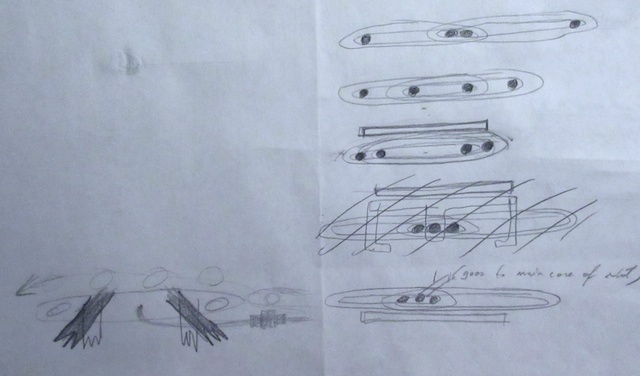 goes to main core of